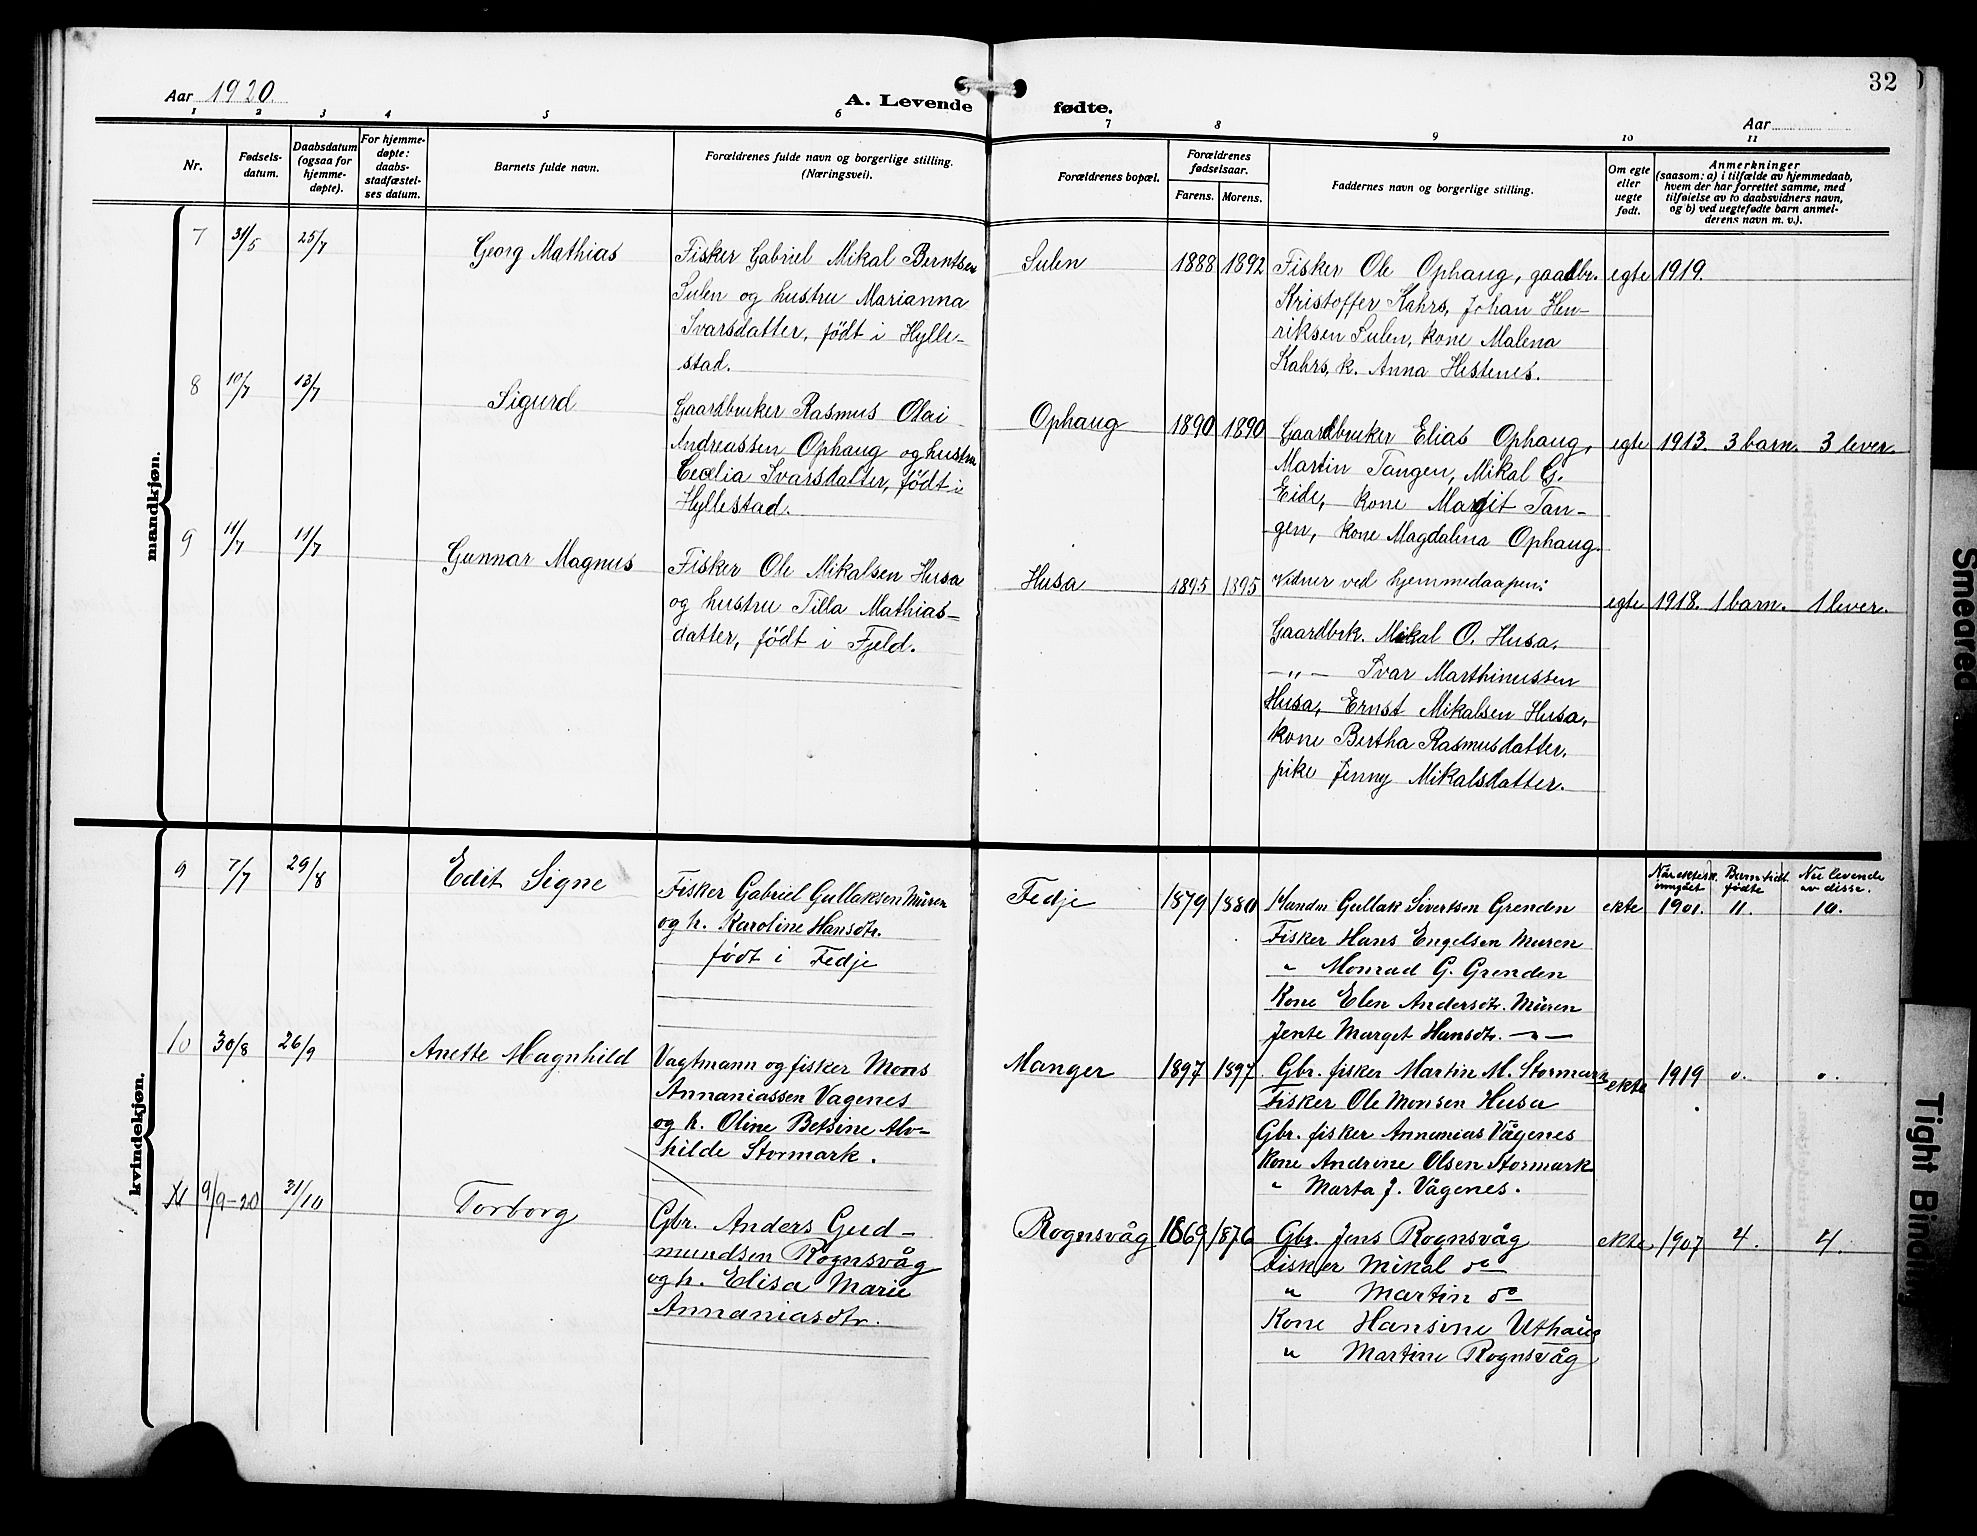 Aar 1920.
A. Levende fødte.
32
Aar
1 2 3 4 5 6 7 8 9 10 11
Nr.
Fødsels-
datum.
Daabsdatum
(ogsaa for
hjemme-
døpte).
For hjemme-
døpte:
daabs-
stadfæstel-
ses datum.
Barnets fulde navn.
Forældrenes fulde navn og borgerlige stilling.
(Næringsvei).
Forældrenes bopæl.
Forældrenes
fødselsaar.
Farens. Morens.
Faddernes navn og borgerlige stilling.
Om egte
eller
uegte
født.
Anmerkninger
(saasom: a) i tilfælde av hjemmedaab,
hvem der har forrettet samme, med
tilføielse av to daabsvidners navn,
og b) ved uegtefødte barn anmel-
derens navn m. v.).
mandkjøn.
7 31/5 25/7 Georg Mathias
Fisker Gabriel Mikal Berntsen
Sulen og hustru Marianna
Ivarsdatter, født i Hylle-
stad.
Sulen 1888 1892
Fisker Ole Ophaug, gaardbr.
Kristoffer Kahrs, Johan Hen-
riksen Sulen, kone Malena
Kahrs, k. Anna Hestenes.
egte 1919.
8 10/7 13/7 Sigurd
Gaardbruker Rasmus Olai
Andreassen Ophaug og hustru
Cecelia Ivarsdatter, født i
Hyllestad.
Ophaug 1890 1890
Gaardbruker Elias Ophaug,
Martin Tangen, Mikal G.
Eide, kone Margit Tan-
gen, kone Magdalina Ophaug.
egte 1913. 3 barn. 3 lever.
9 11/7 11/7 Gunnar Magnus
Fisker Ole Mikalsen Husa
og hustru Tilla Mathias-
datter, født i Fjeld.
Husa 1895 1895
Vidner ved hjemmedaapen:
Gaardbrk. Mikal O. Husa,
—„— Ivar Marthinussen
Husa, Ernst Mikalsen Husa,
kone Bertha Rasmusdatter,
pike Jenny Mikalsdatter.
egte 1918. 1 barn. 1 lever.
kvindekjøn.
9 7/7 29/8 Edit Signe
Fisker Gabriel Gullaksen Muren
og h. Karoline Hansdtr.
født i Fedje
Fedje 1879 1880
Gullak Sivertsen Grenden
Fisker Hans Engelsen Muren
„ Monrad G. Grenden
Kone Elen Andersdtr. Muren
Jente Marget Hansdtr. —„—
ekte
Når ektesk.
inngået
1901.
Barn født
11.
Nu levende
av disse.
10.
10 30/8 26/9 Anette Magnhild
Vagtmann og fisker Mons
Annaniassen Vagenes
og h. Oline Betsine Alv-
hilde Stormark.
Manger 1897 1897
Gbr. fisker Martin M. Stormark
Fisker Ole Monsen Husa
Gbr. fisker Annanias Vågenes
Kone Andrine Olsen Stormark
„ Marta J. Vågenes.
ekte 1919 0. 0.
11 9/9-20 31/10 Torborg
Gbr. Anders Gud-
mundsen Rognsvåg
og h. Elisa Marie
Annaniasdtr.
Rognsvåg 1869 1876
Gbr. Jens Rognsvåg
Fisker Mikal do
„ Martin do
Kone Hansine Uthaug
„ Martine Rognsvåg
ekte 1907 4. 4.
Smeared
Tight Binding